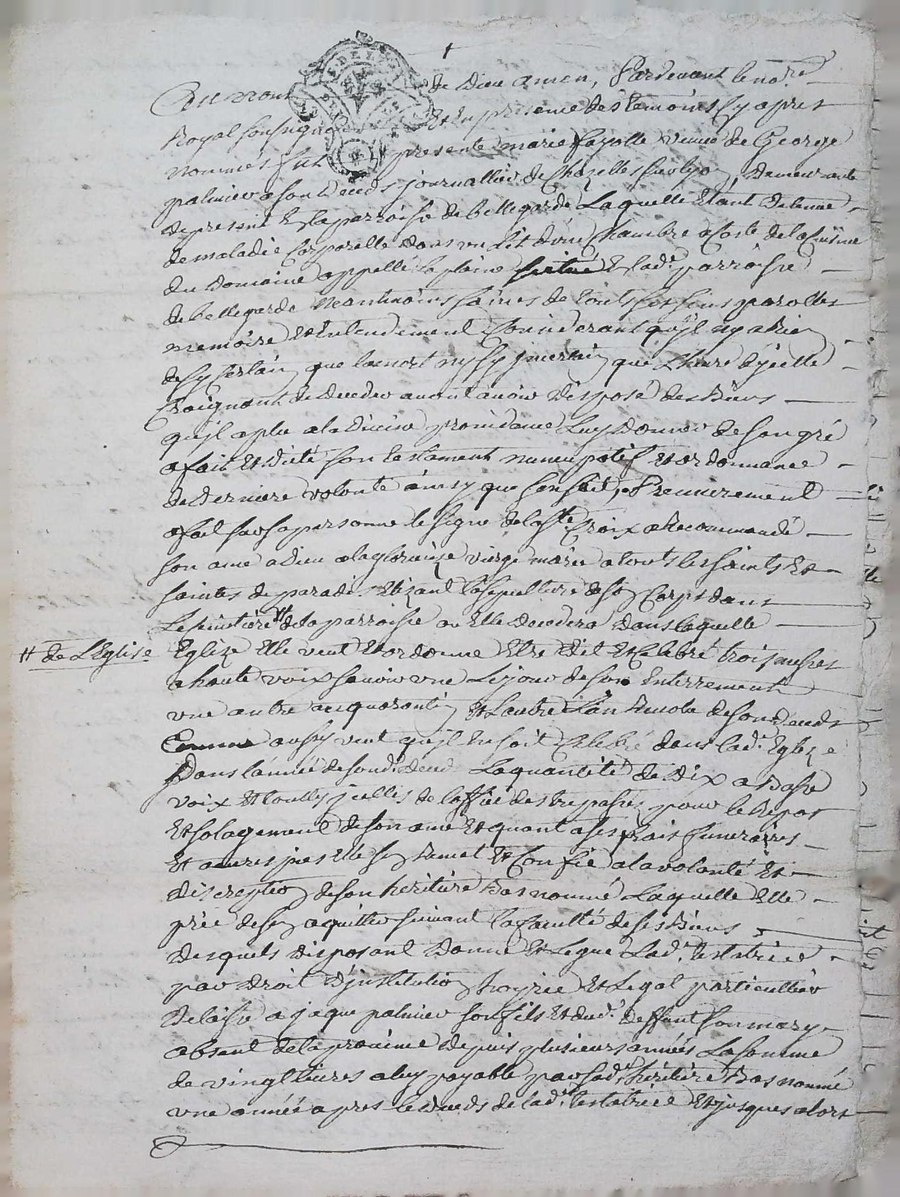 Au nom de Dieu amen, Pardevant le no.re
Royal soussigné Et en presence des temoins cy apres
nommés fut presente marie fayolle veuve de George
palmier a son deceds journallier de Chazelles sur lyon, demeurante
de present En la parroisse de bellegarde Laquelle Etant detenue
de maladie Corporelle dans un lit d'une Chambre a Costé de la Cuisine
du Domaine appellé la plaine situé En lad.e parroisse
de bellegarde Neantmoins saines de touts ses sens parolles
memoire Et Entendement Considerant qu'il ny a rien
de sy Certain que la mort ny sy incertain que L'heure d'icelle
Craignant de deceder avant avoir disposé des Biens
qu'il a plu a la divine providance Luy donner de son gré
a fait Et dicté son testament nuncupatif Et ordonnance
de derniere volonté ainsy que s'en suit, Premierement
a fait sur sa personne le signe de la ste Croix a Recommandé
son ame a Dieu a la glorieuze vierge marie a touts les saints Et
saintes de paradis Elisant la sepulture de sson Corps dans
Le simetiere # de la parroisse ou Elle decedera dans laquelle
# de L'Eglise
Eglize Elle veut Et ordonne Etre dit Et Celebré trois messes
a haute voix savoir une Le jour de son Enterrement
une autre au quarantin Et L'autre L'an revolu de son deceds
Comme aussy veut qu'il En soit Celebré dans lad.e Eglize
Dans l'année de son d. deceds La quantité de Dix a Basse
voix Et touttes icelles de L'office des trepassés pour le Repos
Et solagement de son ame Et quant a ses frais funeraires
Et autres pies Elle s'en remet Et Confie a la volonté Et
discreption de son heritiere Bas nommé Laquelle Elle
prie de s'en aquitter suivant la faculté de ses Biens
desquels disposant Donne Et Legue Lad.e testatrice
par droit d'institution hoyrie Et Legat particullier
delaisse a jaque palmier son fils Et dud. deffunt son mary
absent de la province depuis plusieurs années La somme
de vingt livres a luy payable par sad.e heritiere Bas nommé
une année apres le deceds de lad.e testatrice Et jusques alors